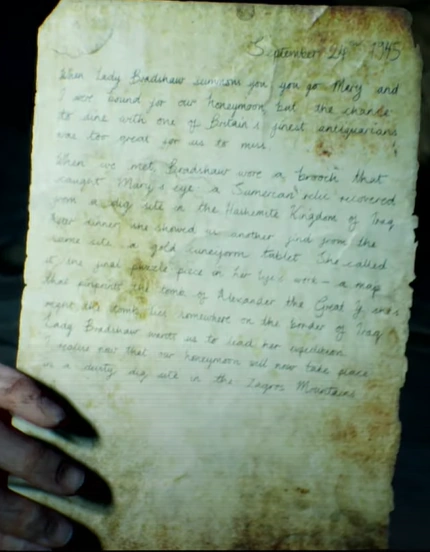 September 24th 1945
When Lady Bradshaw summons you you go. Mary and
I were bound for our honeymoon but the chance
to dine with one of Britain's finest antiquarians
was too great for us to miss.
When we met, Bradshaw wore a brooch that
caught Mary's eye, a Sumerian relic recovered
from a dig site in the Hashemite Kingdom of Iraq
After dinner she showed us another find from the
same site a gold cuneiform tablet. She called
it the final puzzle piece in her life's work – a map
that pinpoints the tomb of Alexander the Great
his tomb lies somewhere on the border of Iraq
Lady Bradshaw wants us to lead her expedition.
I realise now that our honeymoon will now take place
in a dusty dig site in the Zagros Mountains